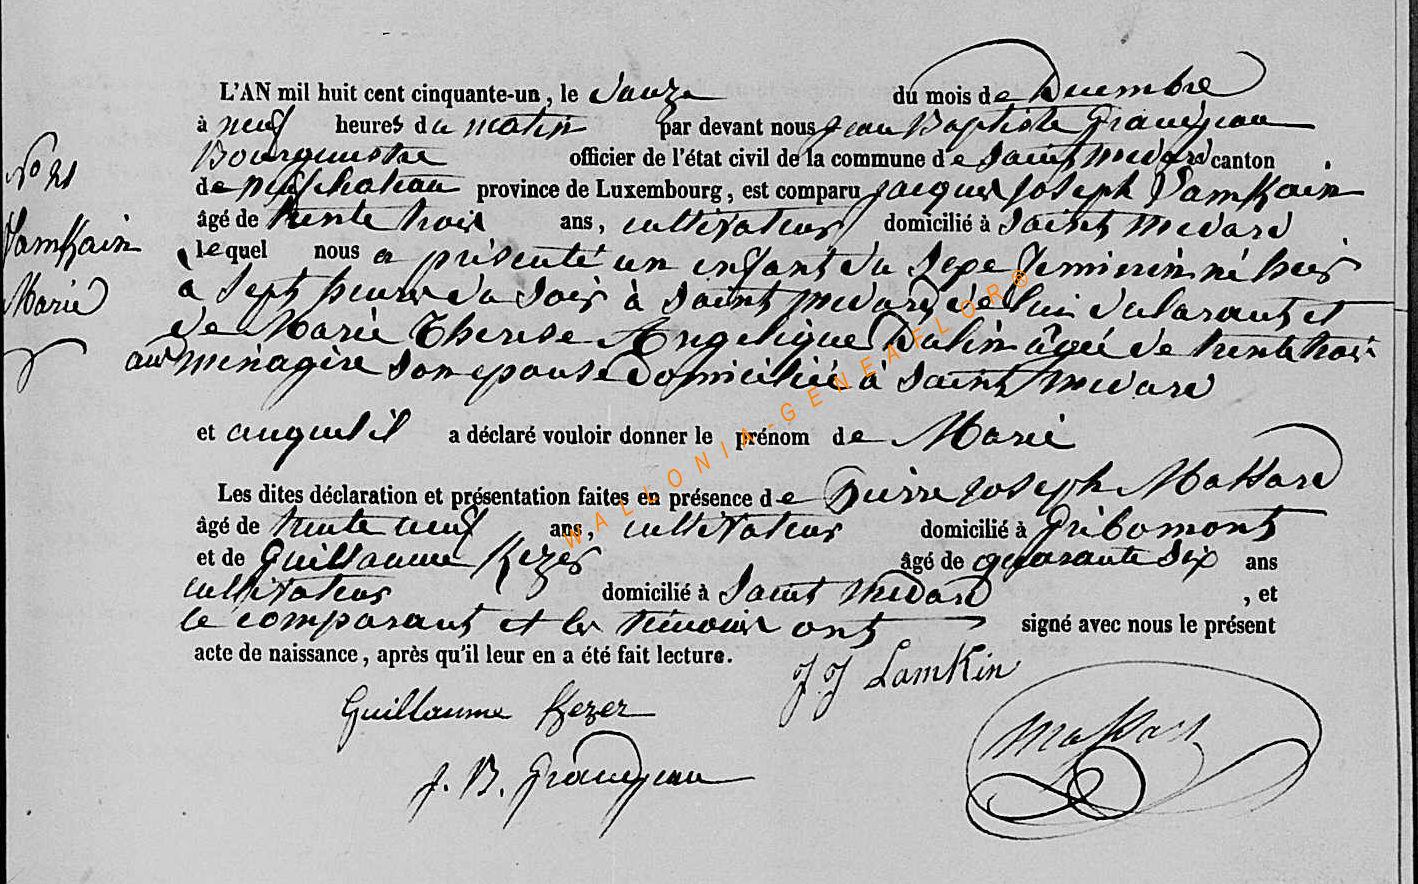 L'AN mil huit cent cinquante-un, le douze du mois de Decembre
à neuf heures du matin par devant nous Jean Baptiste Grandjean
Bourgmestre officier de l'état civil de la commune de Saint Medard canton
de Neufchateau province de Luxembourg, est comparu Jacques Joseph Lamkain
âgé de trente trois ans, cultivateur domicilié à Saint Medard
lequel nous a présenté un enfant du sexe feminin né hier
a sept heures du soir à Saint Medard de lui declarant et
de Marie Therese Angelique âgée de trente trois
ans menagère son epouse domiciliée à Saint Medard
et auquel il a déclaré vouloir donner le prénom de Marie
Les dites déclaration et présentation faites en présence de Pierre Joseph Massard
âgé de trente neuf ans, cultivateur domicilié à Gribomont
et de Guillaume Kezer âgé de quarante six ans
cultivateur domicilié à Saint Medard, et
le comparant et les temoins ont signé avec nous le présent
acte de naissance, après qu'il leur en a été fait lecture.
No 21
Lamkain
Marie
J J Lamkin
Guillaume Kezer
Massard
J. B. Grandjean
WALLONIA-GENEAFLOR®